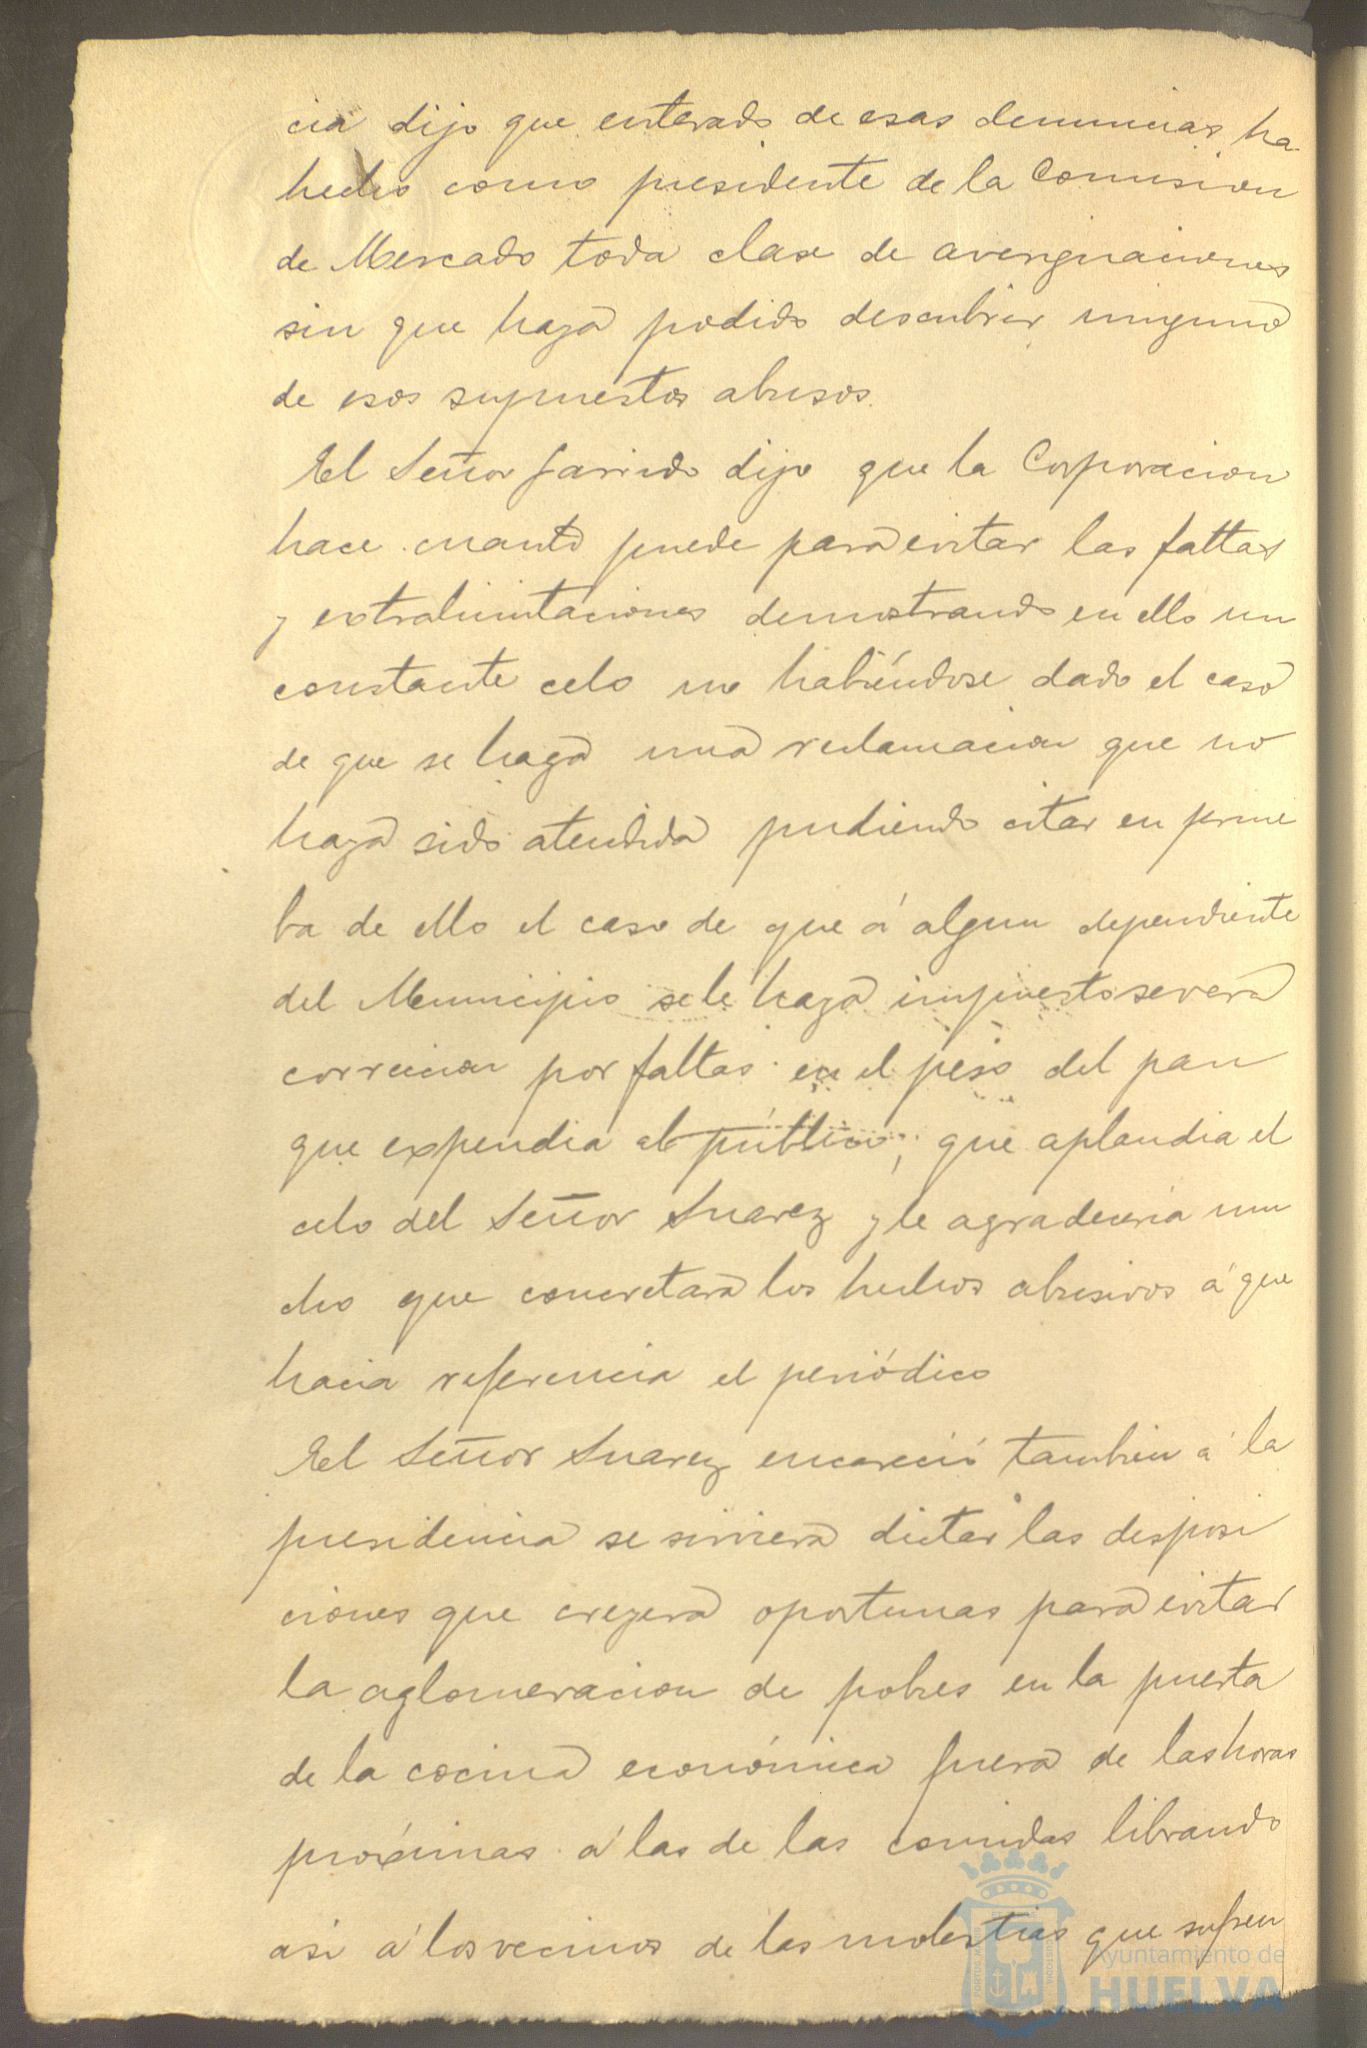 cia dijo que enterado de esas denuncias, ha
hecho como presidente de la Comision
de Mercado toda clase de averiguaciones
sin que haya podido descubrir ninguno
de esos supuestos abusos.
El Señor Garrido dijo que la Corporacion
hace cuanto puede para evitar las faltas
y extralimitaciones demostrando en ello un
constante celo no habiéndose dado el caso
de que se haga una reclamacion que no
haya sido atendida pudiendo citar en prue
ba de ello el caso de que á algun dependiente
del Municipio se le haya impuesto severa
correccion por faltas en el peso del pan
que expendia al público, que aplaudia el
celo del Señor Suarez y le agradeceria mu
cho que concretara los hechos abusivos á que
hacia referencia el periódico
El Señor Suarez encareció tambien á la
presidencia se sirviera dictar las disposi
ciones que creyera oportunas para evitar
la aglomeracion de pobres en la puerta
de la cocina económica fuera de las horas
próximas á las de las comidas librando
asi á los vecinos de las molestias que sufren
Ayuntamiento de
HUELVA